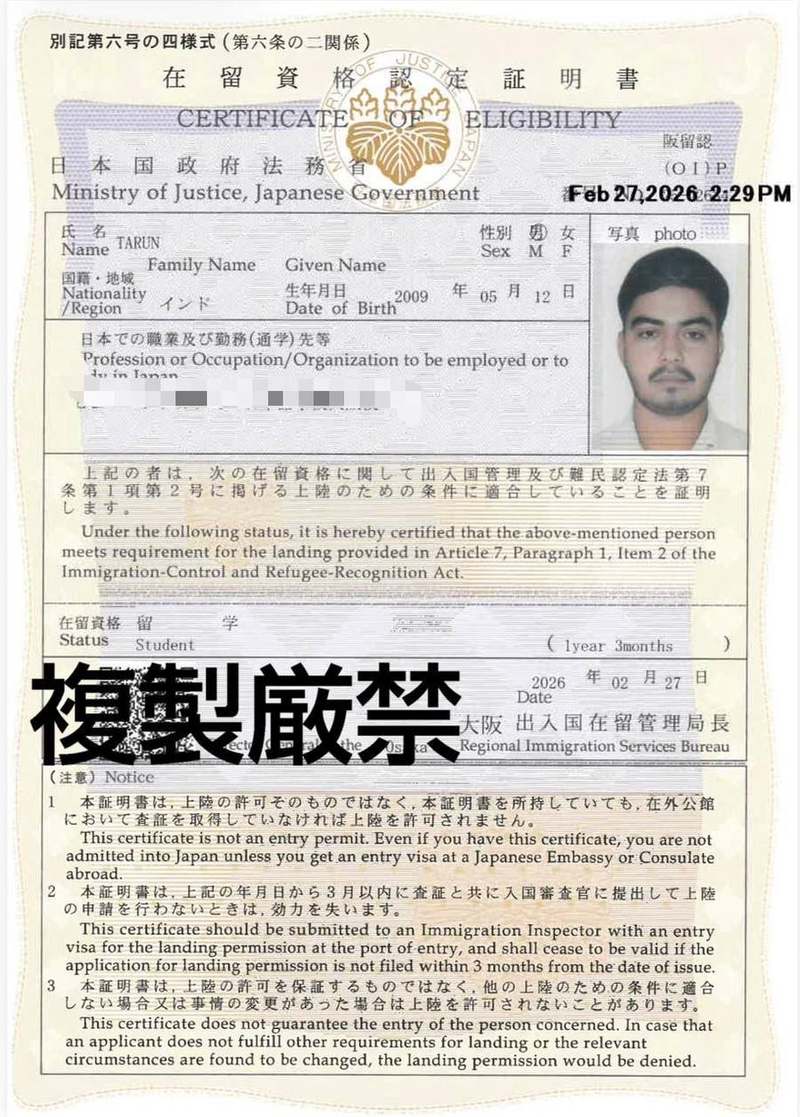 別記第六号の四様式 (第六条の二関係)
在留資格認定証明書
CERTIFICATE OF ELIGIBILITY
MINISTRY OF JUSTICE JAPAN
阪留認
日本国政府法務省
(OI)P
Ministry of Justice, Japanese Government
Feb 27,2026 2:29 PM
氏名
Name TARUN
Family Name Given Name
性別 男 女
Sex M F
写真 photo
国籍・地域
Nationality
/Region インド
生年月日
Date of Birth 2009 年 05 月 12 日
日本での職業及び勤務(通学)先等
Profession or Occupation/Organization to be employed or to
in Japan
上記の者は、次の在留資格に関して出入国管理及び難民認定法第7
条第1項第2号に掲げる上陸のための条件に適合していることを証明
します。
Under the following status, it is hereby certified that the above-mentioned person
meets requirement for the landing provided in Article 7, Paragraph 1, Item 2 of the
Immigration-Control and Refugee-Recognition Act.
在留資格 留学
Status Student
( 1year 3months )
2026 年 02 月 27 日
Date
複製厳禁
大阪 出入国在留管理局長
General the Osaka Regional Immigration Services Bureau
(注意) Notice
1 本証明書は、上陸の許可そのものではなく、本証明書を所持していても、在外公館
において査証を取得していなければ上陸を許可されません。
This certificate is not an entry permit. Even if you have this certificate, you are not
admitted into Japan unless you get an entry visa at a Japanese Embassy or Consulate
abroad.
2 本証明書は、上記の年月日から3月以内に査証と共に入国審査官に提出して上陸
の申請を行わないときは、効力を失います。
This certificate should be submitted to an Immigration Inspector with an entry
visa for the landing permission at the port of entry, and shall cease to be valid if the
application for landing permission is not filed within 3 months from the date of issue.
3 本証明書は、上陸の許可を保証するものではなく、他の上陸のための条件に適合
しない場合又は事情の変更があった場合は上陸を許可されないことがあります。
This certificate does not guarantee the entry of the person concerned. In case that
an applicant does not fulfill other requirements for landing or the relevant
circumstances are found to be changed, the landing permission would be denied.